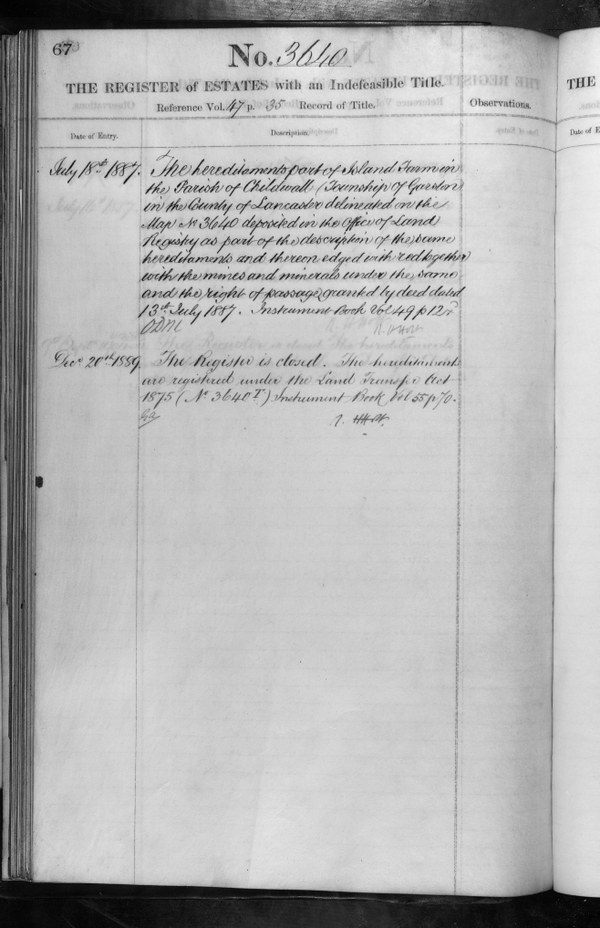 67
No. 3640
THE REGISTER of ESTATES with an Indefeasible Title.
Reference Vol. 47 p. 35 Record of Title.
Observations.
Date of Entry.
Description.
July 18th 1887.
The hereditaments part of Island Farm in
the Parish of Childwall (Township of Garston
in the County of Lancaster delineated on the
Map No 3640 deposited in the Office of Land
Registry as part of the description of the same
hereditaments and thereon edged with red together
with the mines and minerals under the same
and the right of passage granted by deed dated
13th July 1887. Instrument Book Vol 49 p 12
Decr 20th 1889.
The Register is closed. The hereditaments
are registered under the Land Transfer Act
1875 (No 3640 T) Instrument Book Vol 55 p 70.
THE
Date of E